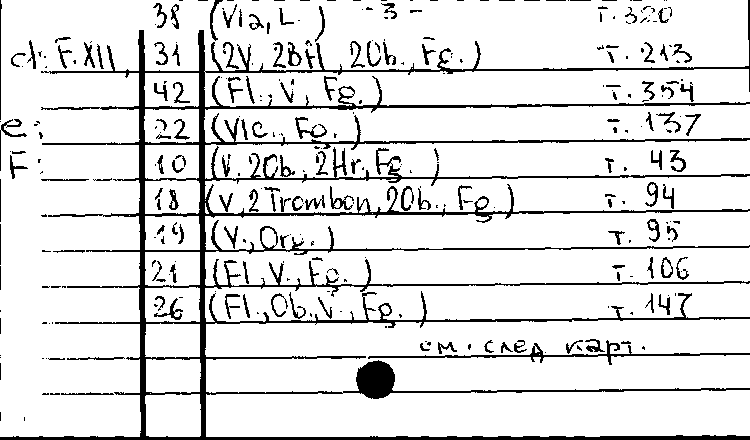 38 (Vla, L.) -3- т. 320
d: F. XII, 31 (2V, 2Bfl, 2Ob., Fg.) т. 213
42 (Fl., V., Fg.) т. 354
e: 22 (Vlc., Fg.) т. 137
F: 10 (V, 2Ob., 2Hr, Fg.) т. 43
18 (V, 2 Trombon, 2Ob., Fg.) т. 94
19 (V., Org.) т. 95
21 (Fl, V., Fg.) т. 106
26 (Fl., Ob., V., Fg.) т. 147
см. след карт.